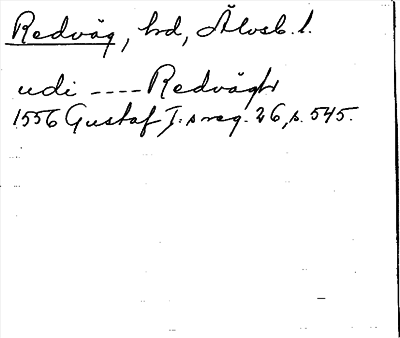 Redväg, hd, Älvsb. l.
udi ---- Redvägh
1556 Gustaf I:s reg. 26, s. 545.